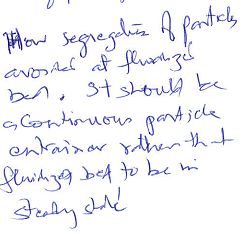 How segregation of particles
avoided at fluidized
bed. It should be
a continuous particle
entrainer rather that
fluidized bed to be in
steady state